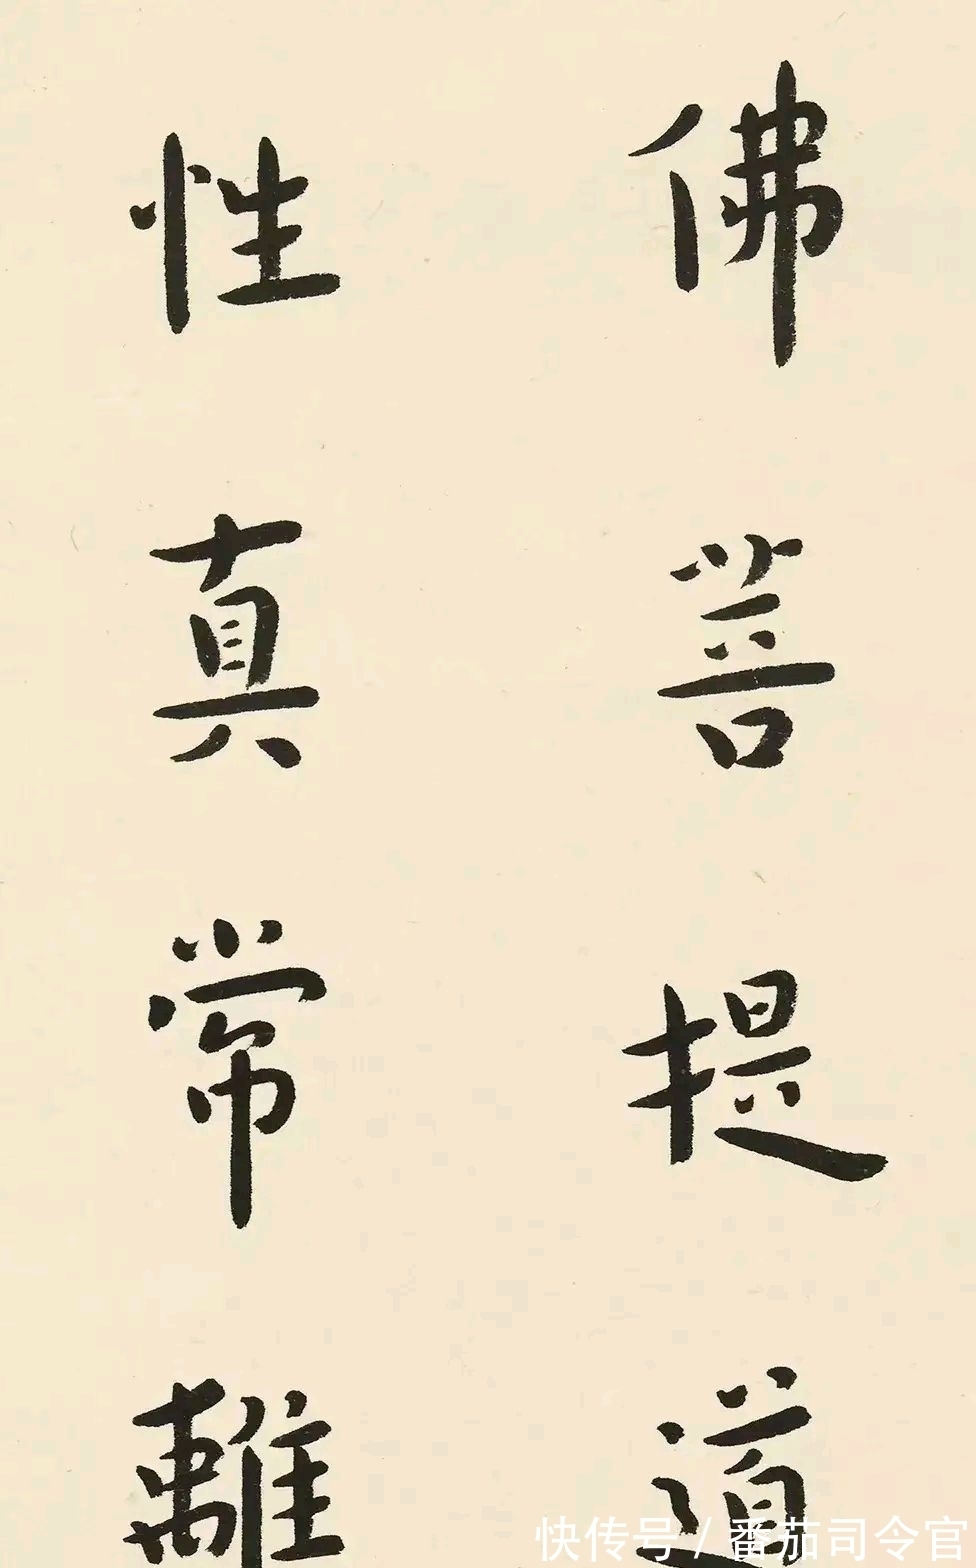 佛菩提道
性真常離
快传号 / 番茄司令官